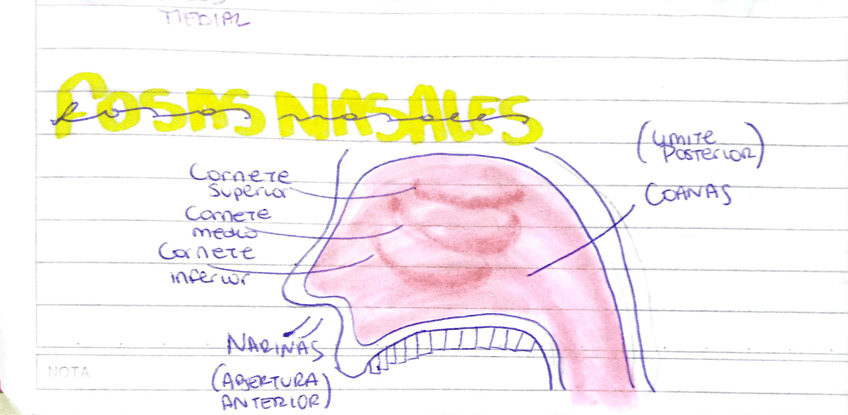 MEDIAL
FOSAS NASALES
fosas nasales
(LIMITE
POSTERIOR)
Cornete
superior
COANAS
Cornete
medio
Cornete
inferior
NARINAS
(ABERTURA
ANTERIOR)
NOTA